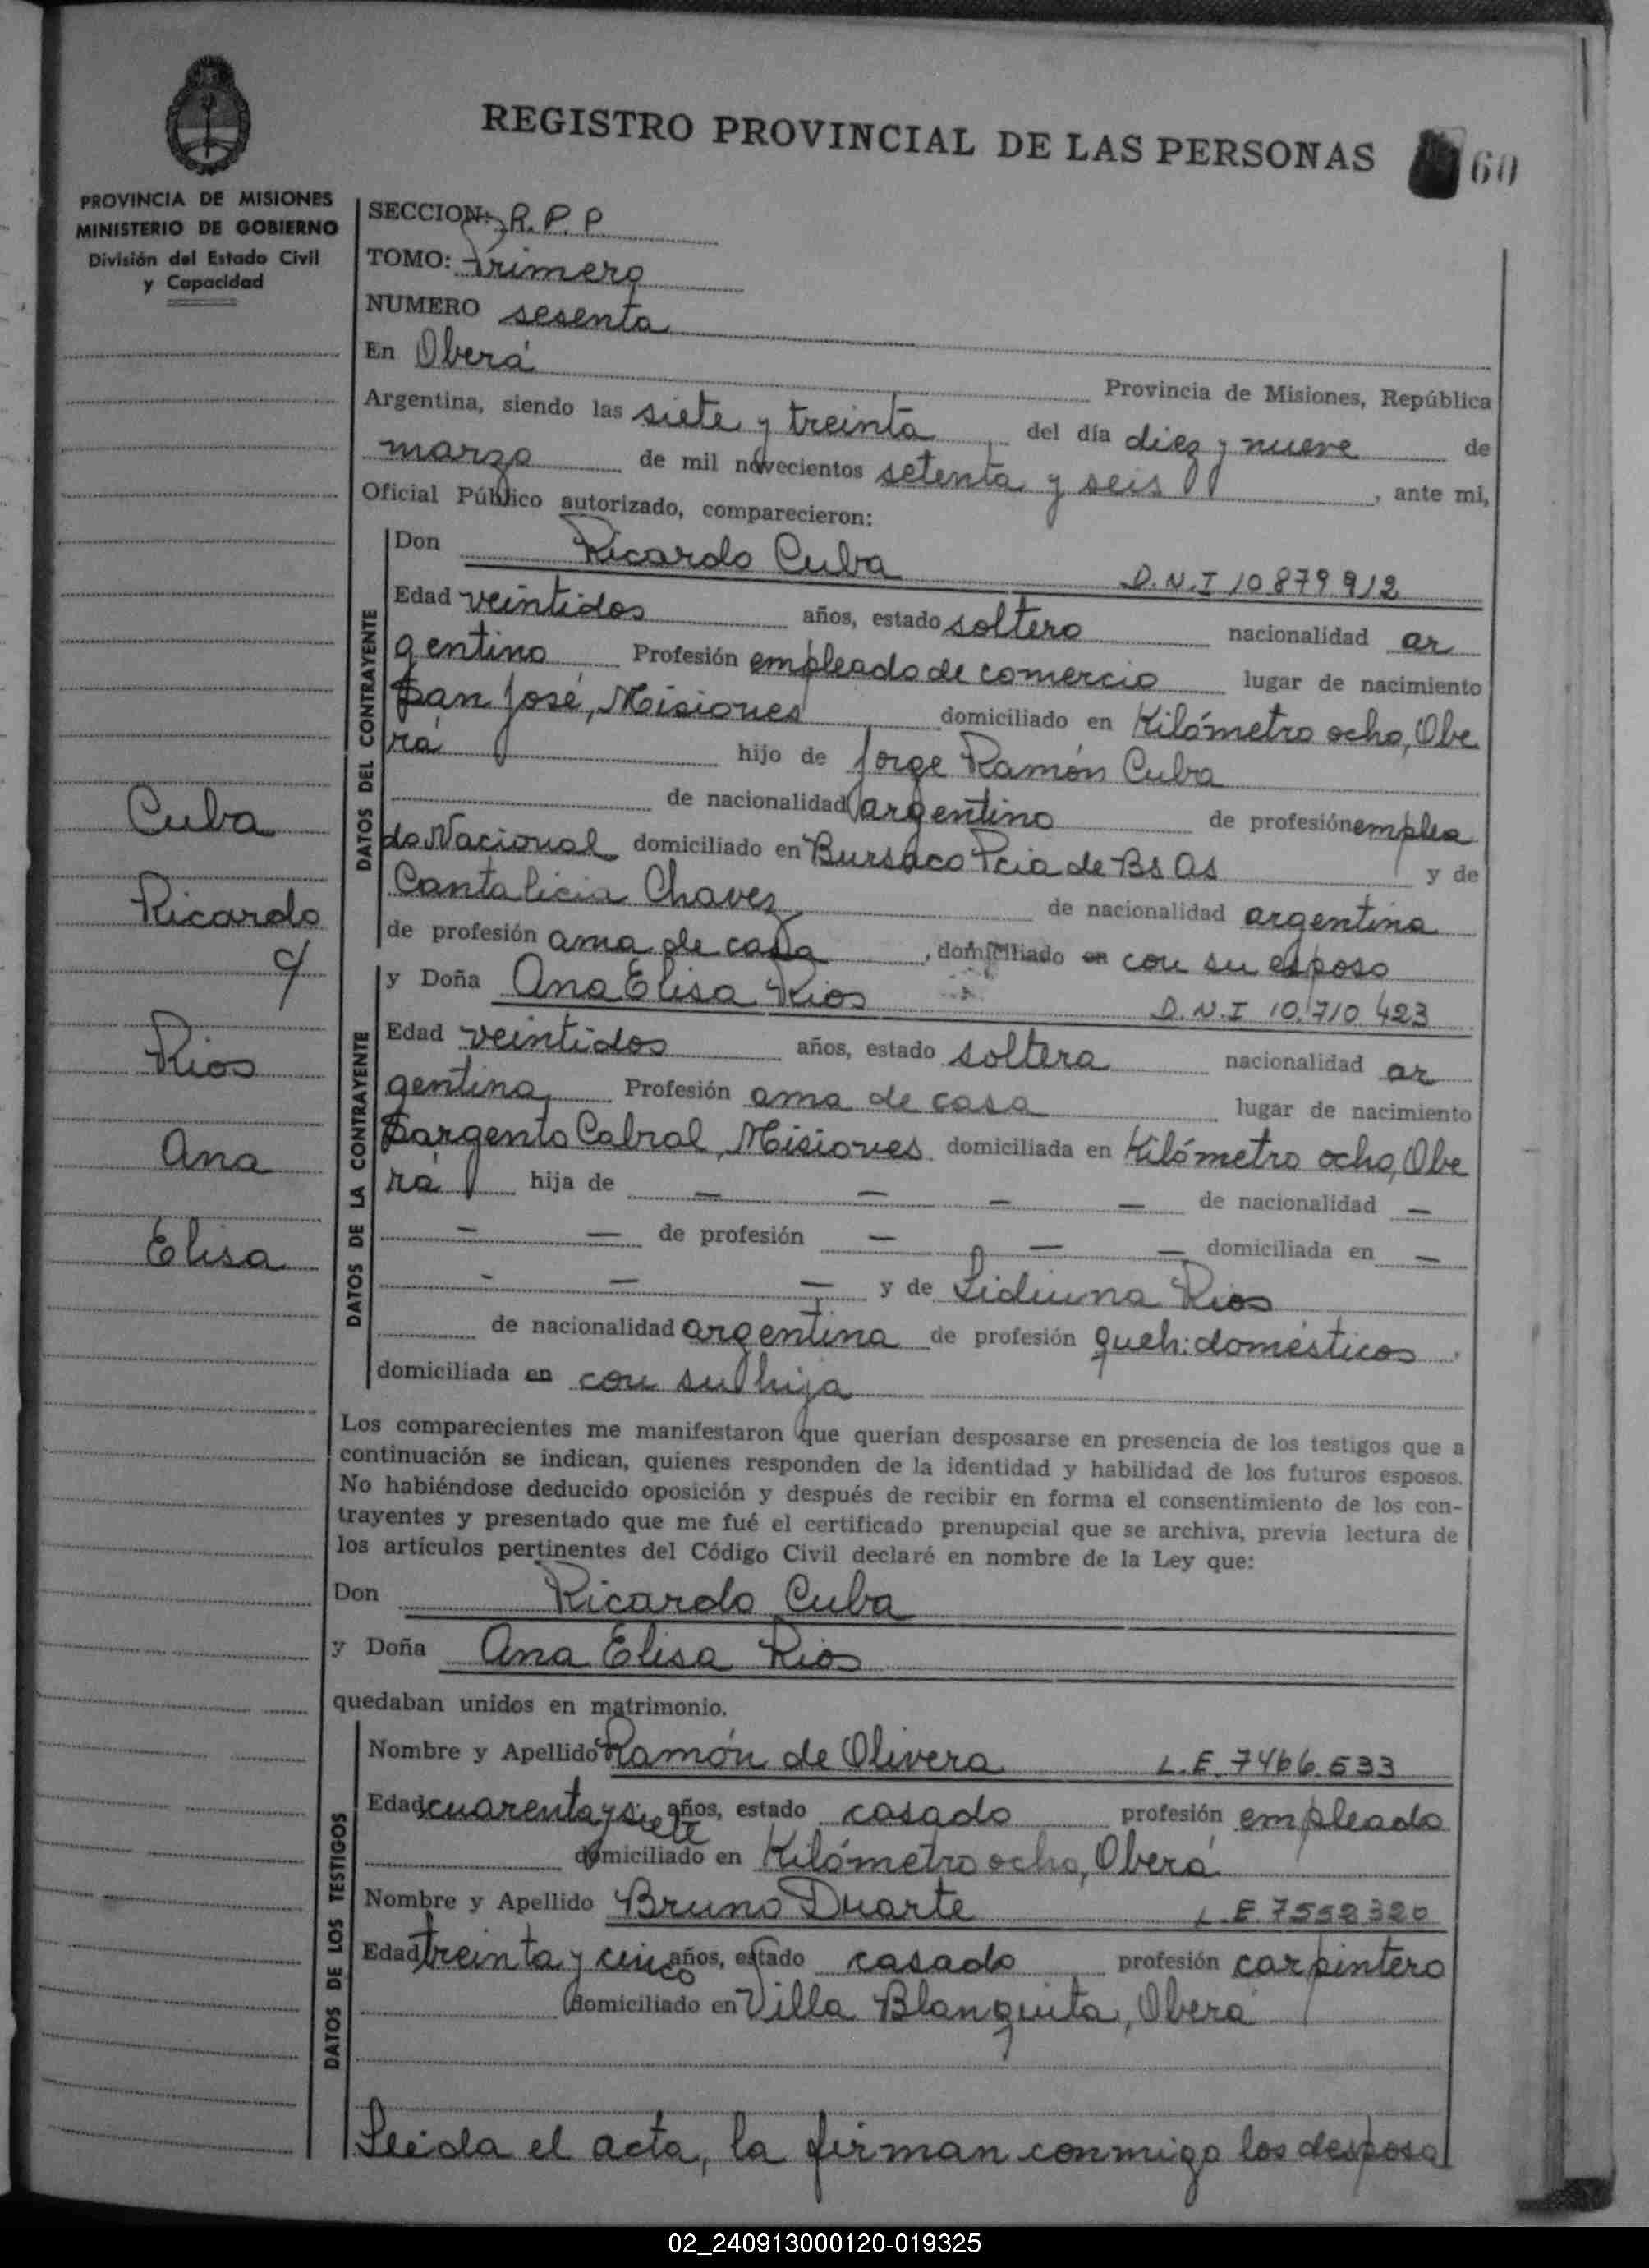 REGISTRO PROVINCIAL DE LAS PERSONAS 60
PROVINCIA DE MISIONES
MINISTERIO DE GOBIERNO
División del Estado Civil
y Capacidad
Cuba
Ricardo
c/
Rios
Ana
Elisa
SECCION: R. P. P.
TOMO: Primero
NUMERO sesenta
En Oberá Provincia de Misiones, República
Argentina, siendo las siete y treinta del día diez y nueve de
marzo de mil novecientos setenta y seis, ante mi,
Oficial Público autorizado, comparecieron:
DATOS DEL CONTRAYENTE
Don Ricardo Cuba D.N.I 10 879 912
Edad veintidos años, estado soltero nacionalidad ar
gentino Profesión empleado de comercio lugar de nacimiento
San José, Misiones domiciliado en Kilómetro ocho, Obe
rá hijo de Jorge Ramón Cuba
de nacionalidad argentino de profesión emplea
do Nacional domiciliado en Bursaco Pcia de Bs As y de
Cantalicia Chavez de nacionalidad argentina
de profesión ama de casa, domiciliado en con su esposo
DATOS DE LA CONTRAYENTE
y Doña Ana Elisa Rios D.N.I 10.710 423
Edad veintidos años, estado soltera nacionalidad ar
gentina, Profesión ama de casa lugar de nacimiento
Sargento Cabral, Misiones domiciliada en Kilómetro ocho, Obe
rá hija de — — — — de nacionalidad —
— — de profesión — — — domiciliada en —
- — — y de Liduina Rios
de nacionalidad argentina de profesión queh: domésticos.
domiciliada en con su hija
Los comparecientes me manifestaron que querían desposarse en presencia de los testigos que a
continuación se indican, quienes responden de la identidad y habilidad de los futuros esposos.
No habiéndose deducido oposición y después de recibir en forma el consentimiento de los con-
trayentes y presentado que me fué el certificado prenupcial que se archiva, previa lectura de
los artículos pertinentes del Código Civil declaré en nombre de la Ley que:
Don Ricardo Cuba
y Doña Ana Elisa Rios
quedaban unidos en matrimonio.
DATOS DE LOS TESTIGOS
Nombre y Apellido Ramón de Olivera L.E. 7466.533
Edad cuarenta y siete años, estado casado profesión empleado
domiciliado en Kilómetro ocho, Oberá
Nombre y Apellido Bruno Duarte L.E. 7552320
Edad treinta y cinco años, estado casado profesión carpintero
domiciliado en Villa Blanquita, Oberá
Leida el acta, la firman conmigo los desposa
02_240913000120-019325